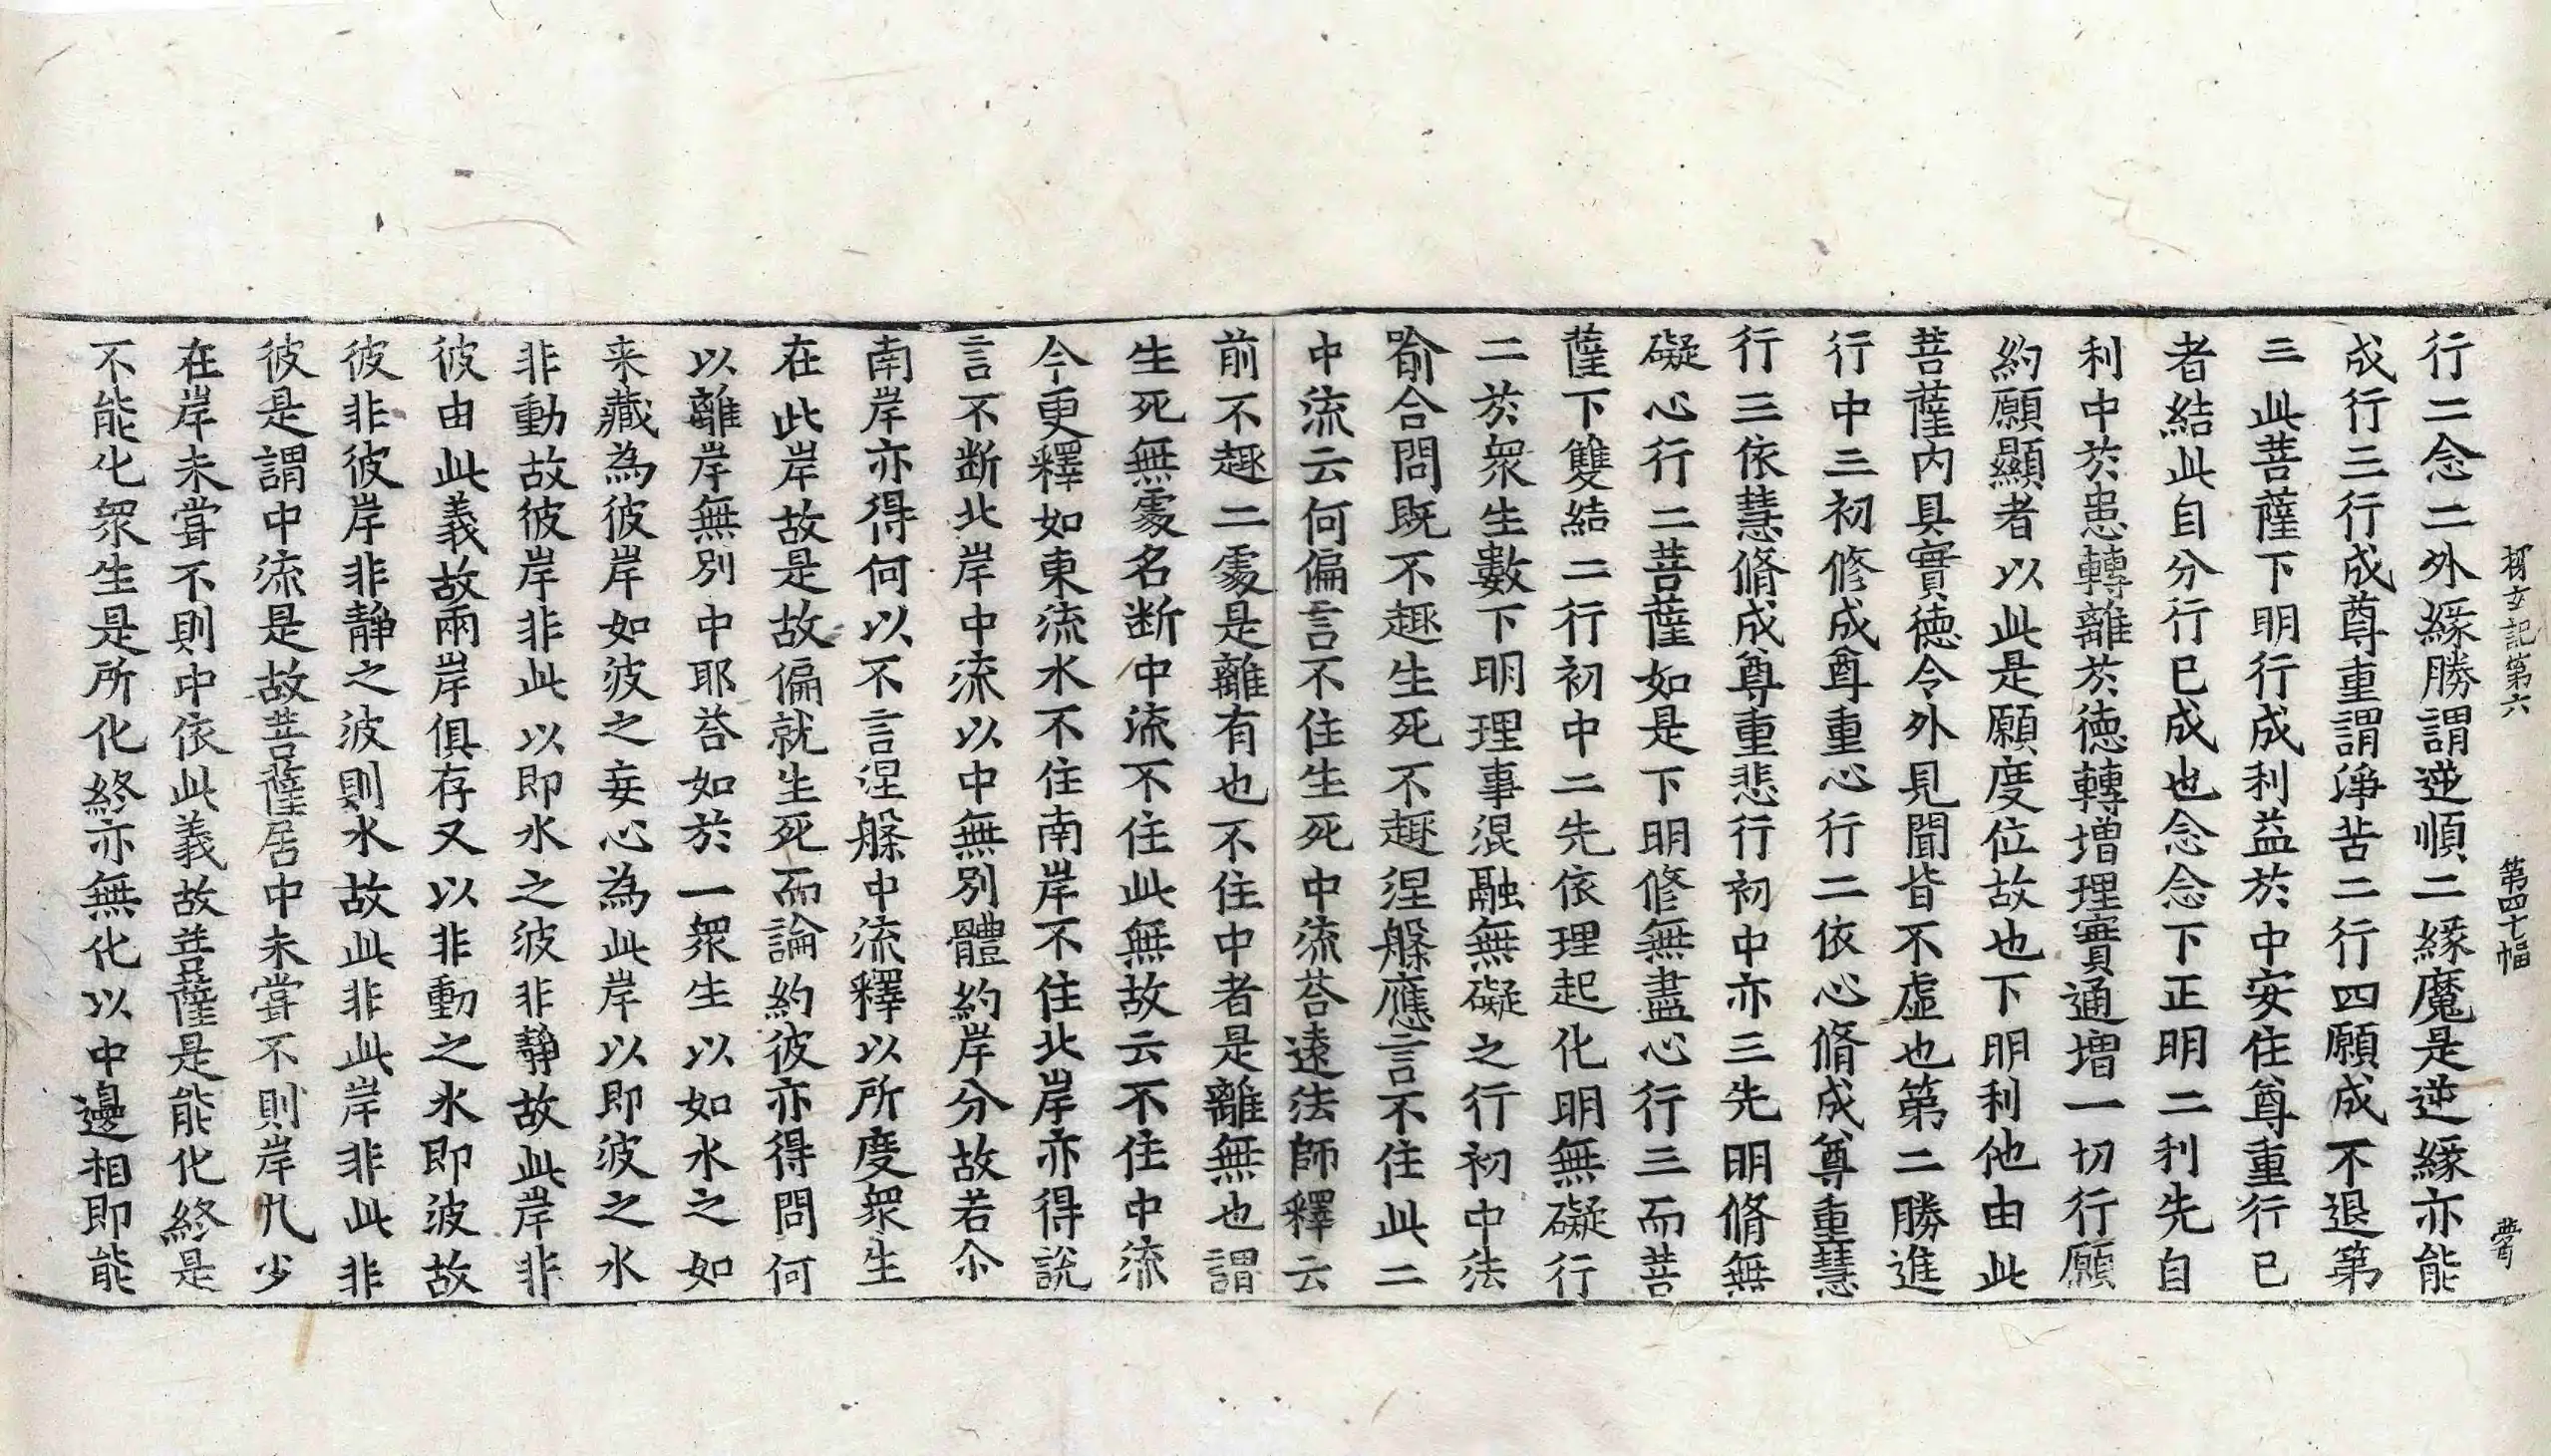 探玄記第六 第四十七幅 
行二念二外緣勝謂逆順二緣魔是逆緣亦能
成行三行成尊重謂淨苦二行四願成不退第
三此菩薩下明行成利益於中安住尊重行已
者結此自分行已成也念念下正明二利先自
利中於患轉離於德轉增理實通增一切行願
約願顯者以此是願度位故也下明利他由此
菩薩內具實德令外見聞皆不虛也第二勝進
行中三初修成尊重心行二依心脩成尊重慧
行三依慧脩成尊重悲行初中亦三先明脩無
礙心行二菩薩如是下明修無盡心行三而菩
薩下雙結二行初中二先依理起化明無礙行
二於衆生數下明理事混融無礙之行初中法
喻合問既不趣生死不趣涅槃應言不住此二
中流云何偏言不住生死中流荅遠法師釋云
前不趣二處是離有也不住中者是離無也謂
生死無處名断中流不住此無故云不住中流
今更釋如東流水不住南岸不住北岸亦得說
言不断北岸中流以中無別體約岸分故若尒
南岸亦得何以不言涅槃中流釋以所度衆生
在此岸故是故偏就生死而論約彼亦得問何
以離岸無別中耶荅如於一衆生以如水之如
来藏為彼岸如波之妄心為此岸以即波之水
非動故彼岸非此以即水之波非靜故此岸非
彼由此義故兩岸俱存又以非動之水即波故
彼非彼岸非靜之波則水故此非此岸非此非
彼是謂中流是故菩薩居中未甞不則岸凡少
在岸未甞不則中依此義故菩薩是能化終是
不能化衆生是所化終亦無化以中邊相即能